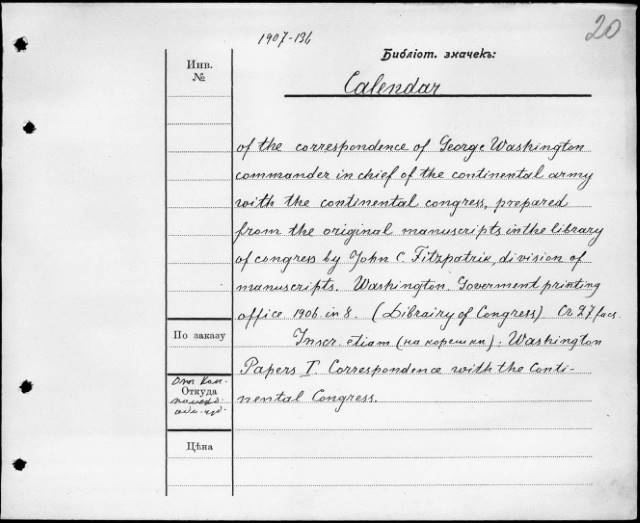 1907-136
20
Библіот. значекъ:
Инв.
№
Calendar
of the correspondence of George Washington
commander in chief of the continental army
with the continental congress, prepared
from the original manuscripts in the library
of congress by John C. Fitzpatrik, division of
manuscripts. Washington. Goverment printing
office 1906. in 8. (Librairy of Congress) Cr 27 facs.
Inscr. etiam (на корешки): Washington
Papers I. Correspondence with the Conti-
nental Congress.
По заказу
От Ком.
Откуда
Цѣна